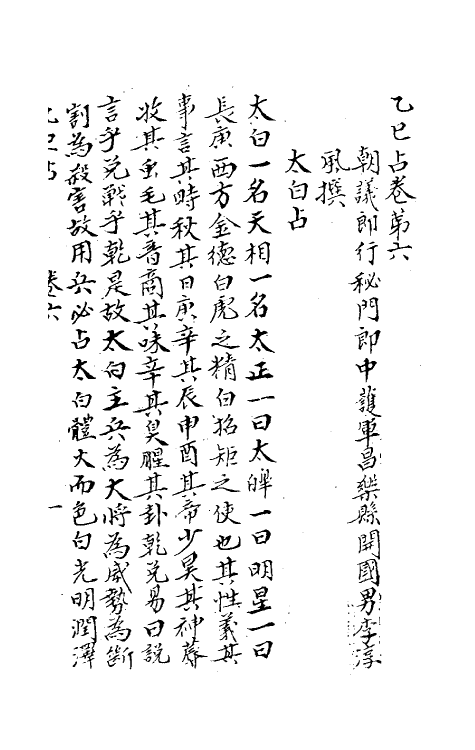 乙巳占卷第六
朝議郎行秘門郎中護軍昌樂縣開國男李淳
風撰
太白占
太白一名天相一名太正一曰太皞一曰明星一曰
長庚西方金德白虎之精白招矩之使也其性義其
事言其時秋其日庚辛其辰申酉其帝少昊其神蓐
收其虫毛其音商其味辛其臭腥其卦乾兌易曰說
言乎兌戰乎乾是故太白主兵為大將為威勢為斷
割為殺害故用兵必占太白體大而色白光明潤澤
乙巳占 卷六 一